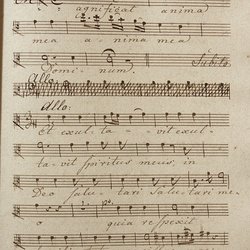 agnificat anima
mea anima mea
Dominum. Subito
Allo:
Allo:
Et exul- ta- vit exul-
tavit spiritus meus, in
Deo salu- tari salutari me-
o quia respexit